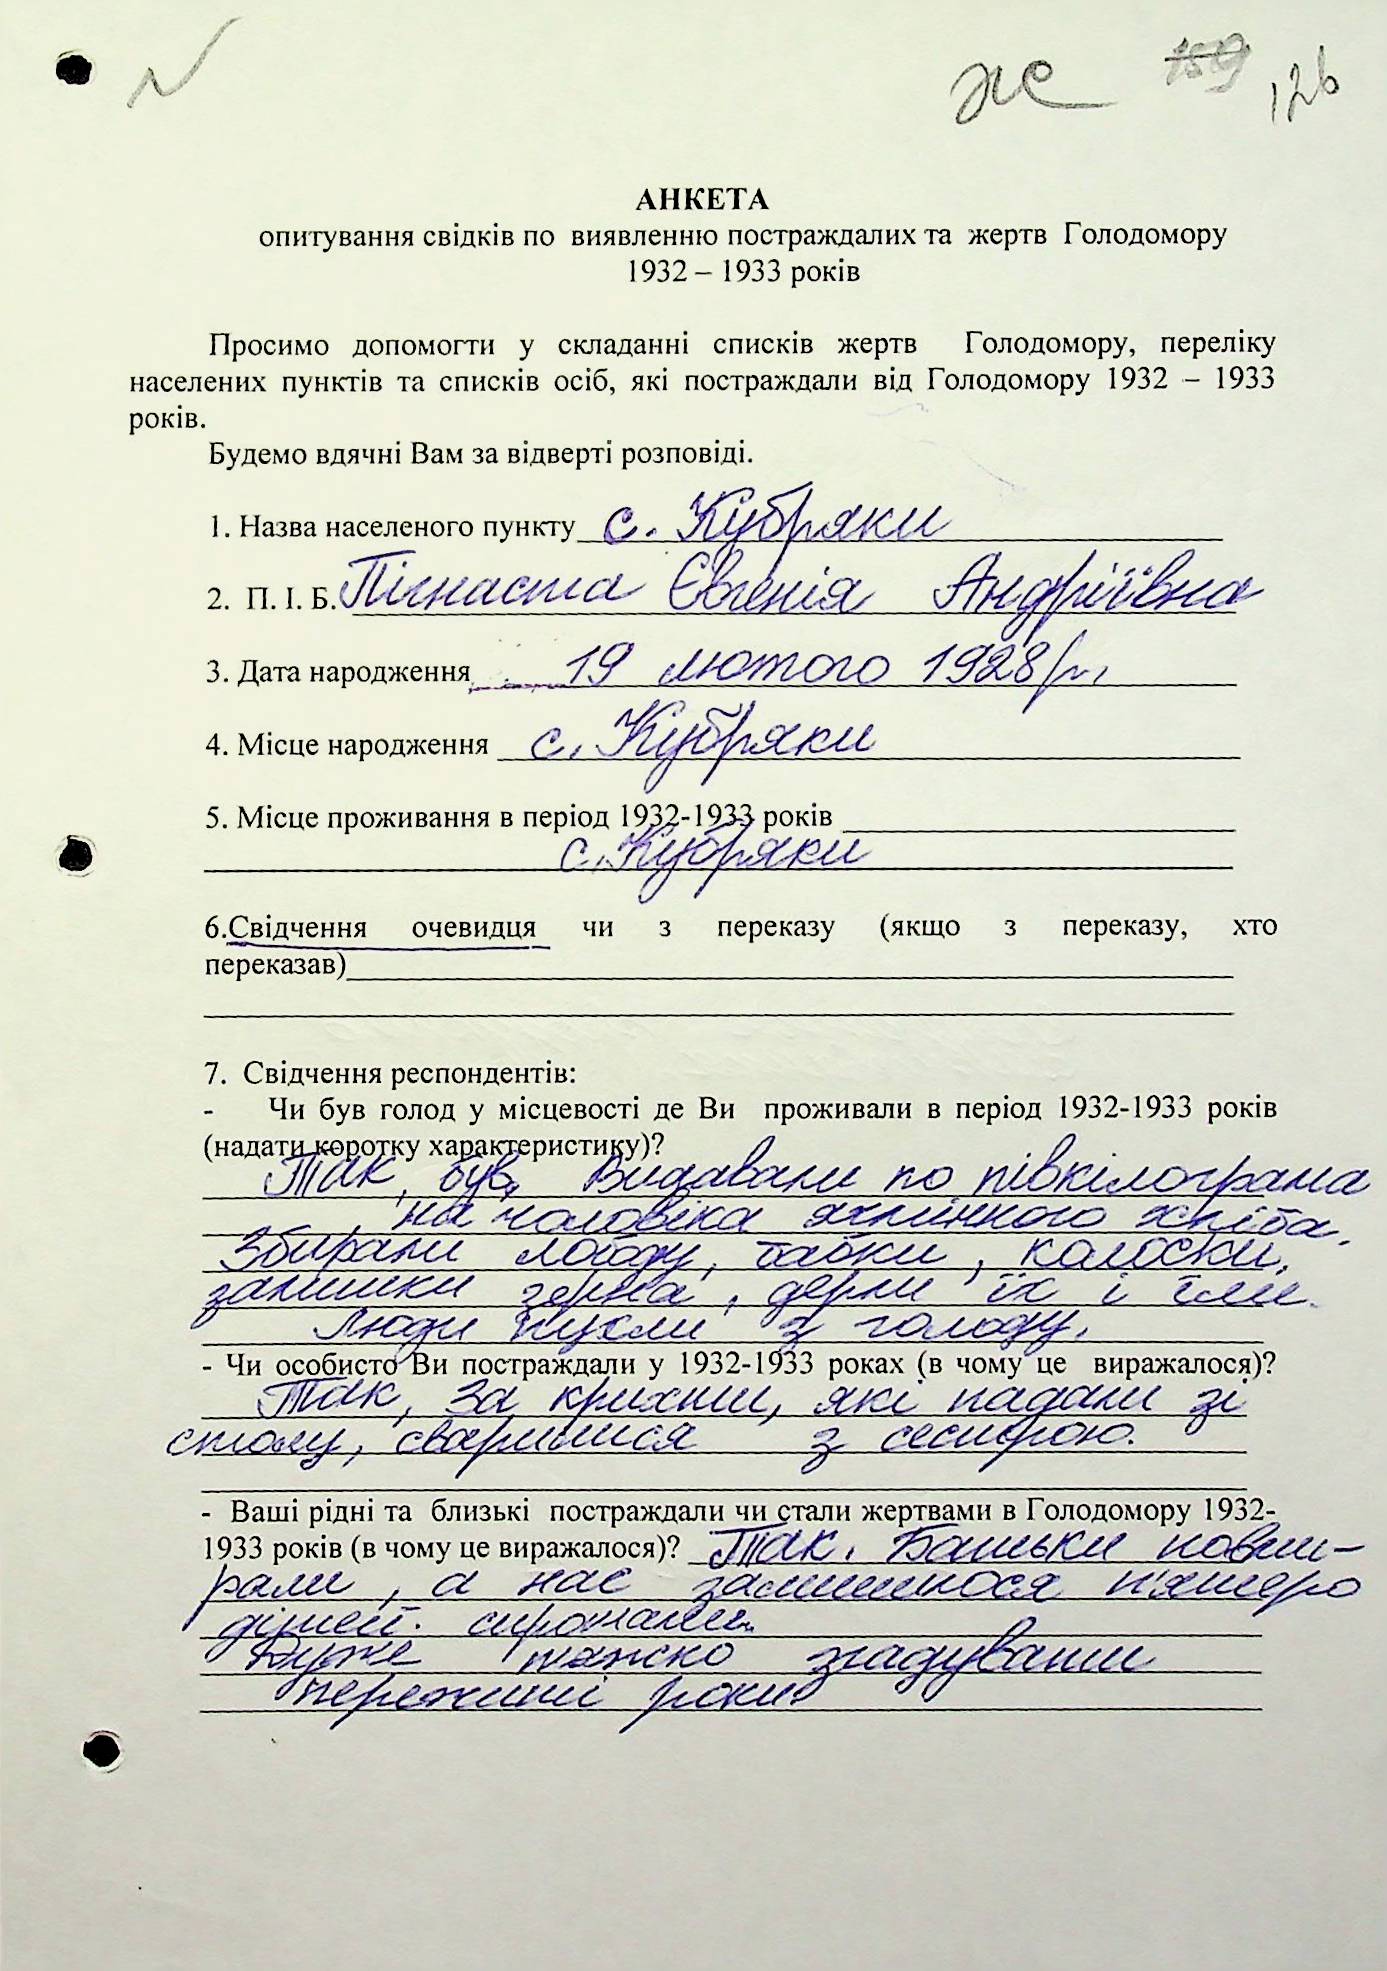 же 159 126
АНКЕТА
опитування свідків по виявленню постраждалих та жертв Голодомору
1932 – 1933 років
Просимо допомогти у складанні списків жертв Голодомору, переліку
населених пунктів та списків осіб, які постраждали від Голодомору 1932 – 1933
років.
Будемо вдячні Вам за відверті розповіді.
1. Назва населеного пункту с. Кубряки
2. П. І. Б. Пігнаста Євгенія Андріївна
3. Дата народження 19 лютого 1928 р.
4. Місце народження с. Кубряки
5. Місце проживання в період 1932-1933 років
с. Кубряки
6.Свідчення очевидця чи з переказу (якщо з переказу, хто
переказав)
7. Свідчення респондентів:
- Чи був голод у місцевості де Ви проживали в період 1932-1933 років
(надати коротку характеристику)?
Так, був. Видавали по півкілограма
на чоловіка ячмінного хліба.
Збирали лободу, бабки, колоски,
залишки зерна, дерли їх і їли.
Люди пухли з голоду.
- Чи особисто Ви постраждали у 1932-1933 роках (в чому це виражалося)?
Так, за крихти, які падали зі
столу, сварилися з сестрою.
- Ваші рідні та близькі постраждали чи стали жертвами в Голодомору 1932-
1933 років (в чому це виражалося)? Так. Батьки повми-
рали, а нас залишилося п'ятеро
дітей. сиротами.
Дуже тяжко згадувати
пережиті роки